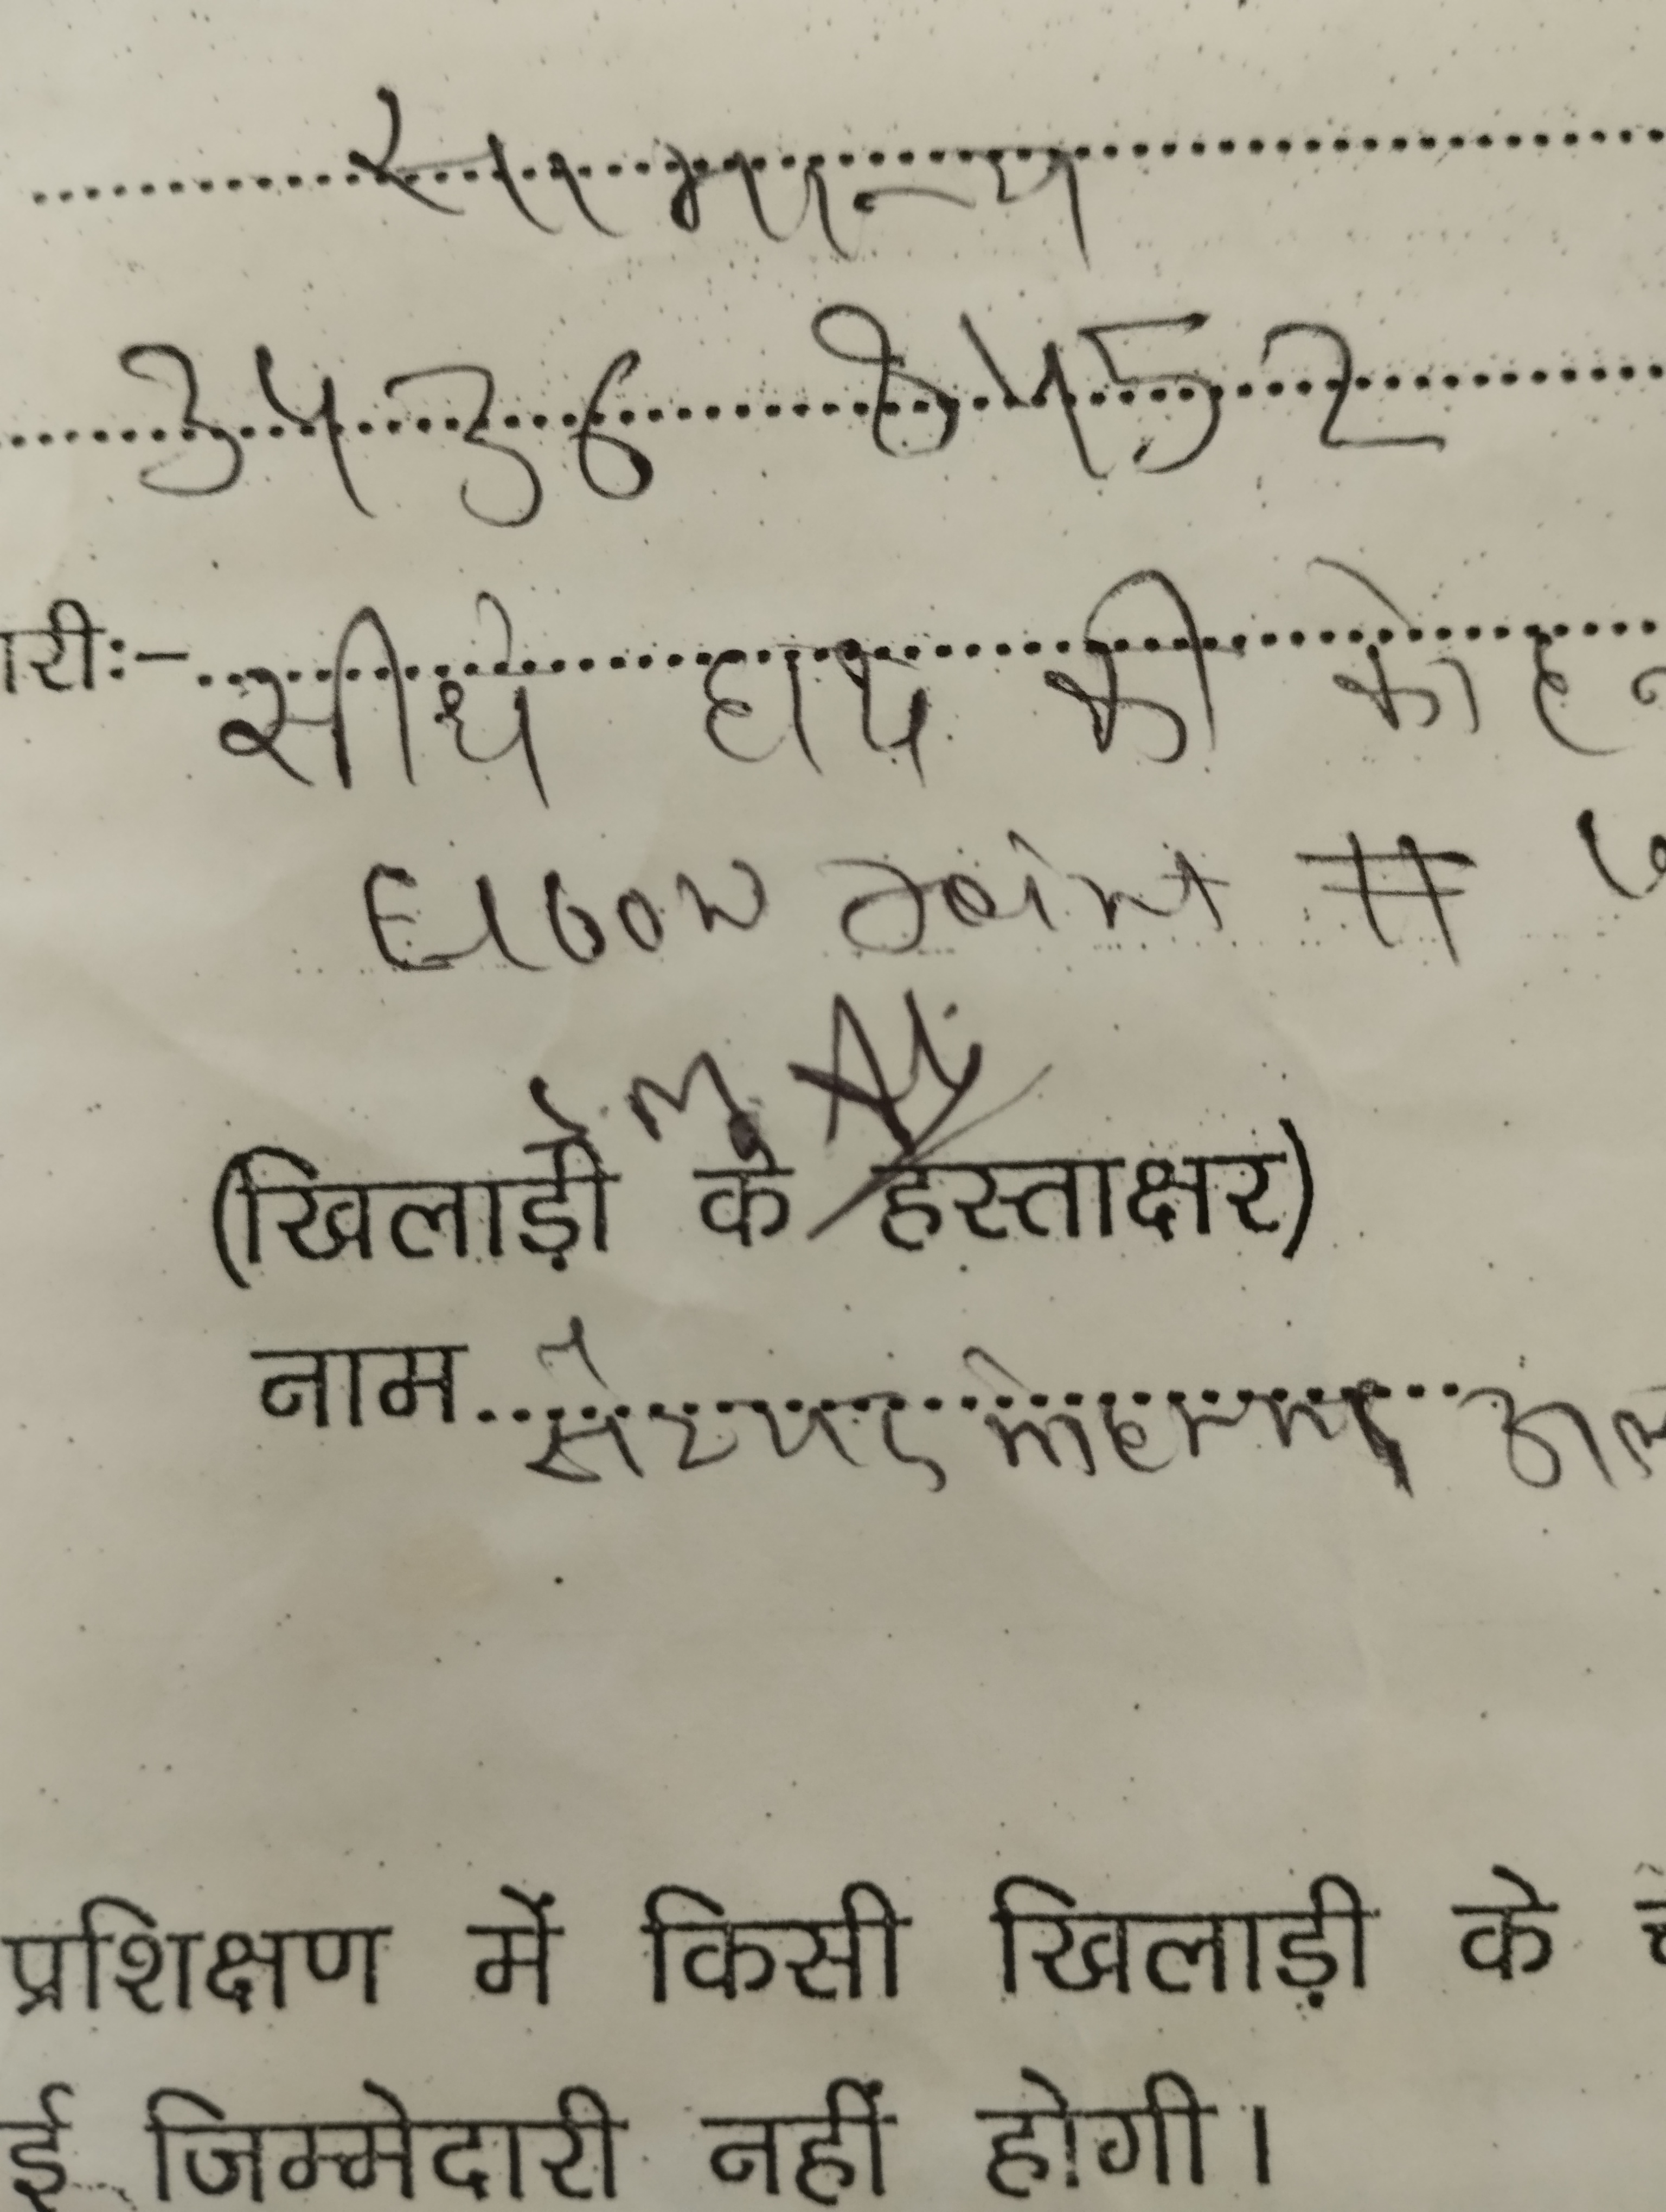 सामान्य
3436 8452
ारीः- सीधे हाथ की कोहन
Elbow Joint #
M Ali
(खिलाड़ी के हस्ताक्षर)
नाम सैय्यद मोहम्मद अल
प्रशिक्षण में किसी खिलाड़ी के
ई जिम्मेदारी नहीं होगी।